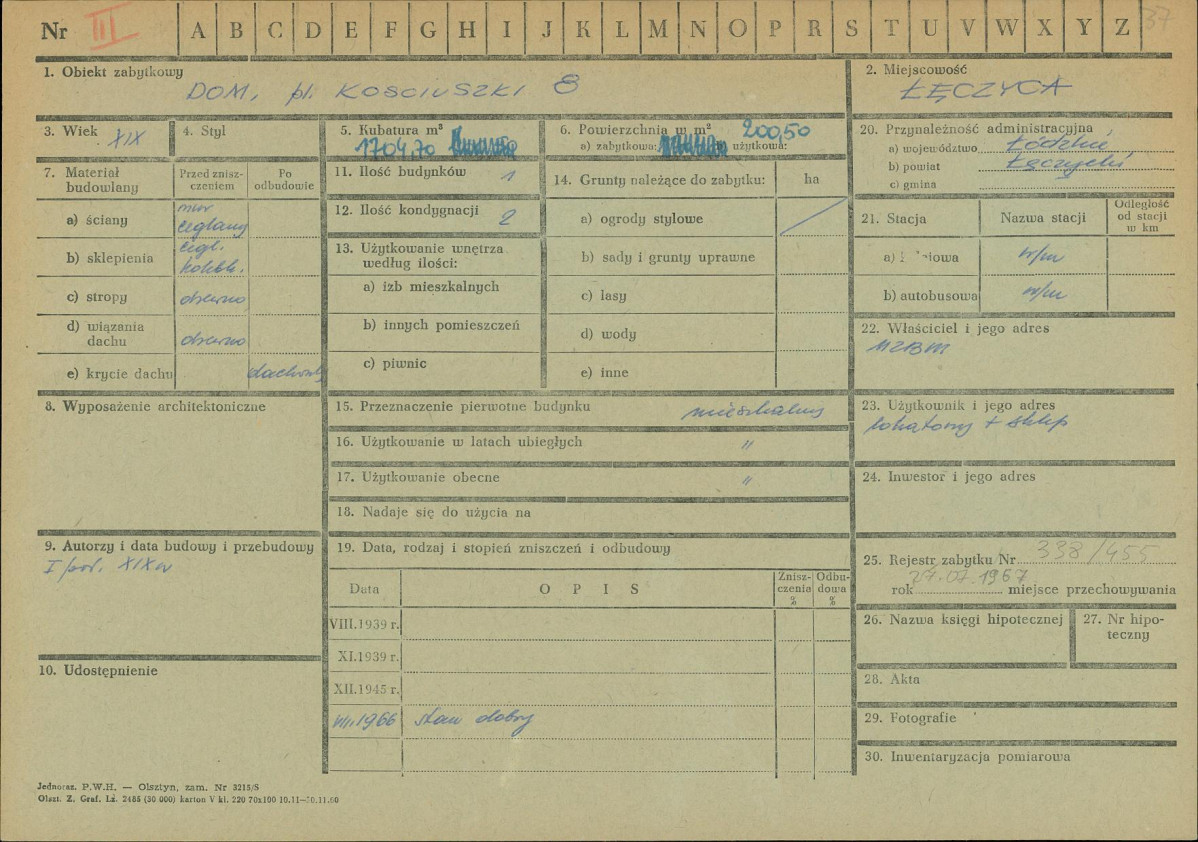 Nr III A B C D E F G H I J K L M N O P R S T U V W X Y Z 37
1. Obiekt zabytkowy
DOM, pl. KOŚCIUSZKI 8
2. Miejscowość
ŁĘCZYCA
3. Wiek XIX
4. Styl
5. Kubatura m³
1704,70
6. Powierzchnia w m² 200,50
a) zabytkowa: użytkowa:
20. Przynależność administracyjna
a) województwo Łódzkie,
b) powiat Łęczycki,
c) gmina
7. Materiał budowlany
Przed znisz-
czeniem
Po
odbudowie
a) ściany mur ceglany
b) sklepienia cegl. kolebk.
c) stropy drewno
d) wiązania dachu drewno
e) krycie dachu
11. Ilość budynków 1
12. Ilość kondygnacji 2
13. Użytkowanie wnętrza
według ilości:
a) izb mieszkalnych
b) innych pomieszczeń
c) piwnic
14. Grunty należące do zabytku: ha
a) ogrody stylowe
b) sady i grunty uprawne
c) lasy
d) wody
e) inne
21. Stacja Nazwa stacji
Odległość
od stacji
w km
a) w/m
b) autobusowa w/m
22. Właściciel i jego adres
MZBM
8. Wyposażenie architektoniczne
15. Przeznaczenie pierwotne budynku mieszkalny
16. Użytkowanie w latach ubiegłych "
17. Użytkowanie obecne "
18. Nadaje się do użycia na
23. Użytkownik i jego adres
lokatorzy + sklep
24. Inwestor i jego adres
9. Autorzy i data budowy i przebudowy
I poł. XIX w
10. Udostępnienie
19. Data, rodzaj i stopień zniszczeń i odbudowy
Data OPIS
Znisz-
czenia
%
Odbu-
dowa
%
VIII.1939 r.
XI.1939 r.
XII.1945 r.
VII.1966 stan dobry
25. Rejestr zabytku Nr 338/455
rok 27.07.1967 miejsce przechowywania
26. Nazwa księgi hipotecznej
27. Nr hipo-
teczny
28. Akta
29. Fotografie
30. Inwentaryzacja pomiarowa
Jednoraz. P.W.H. — Olsztyn, zam. Nr 3215/S
Olszt. Z. Graf. Lż. 2485 (30 000) karton V kl. 220 70x100 10.11—30.11.60